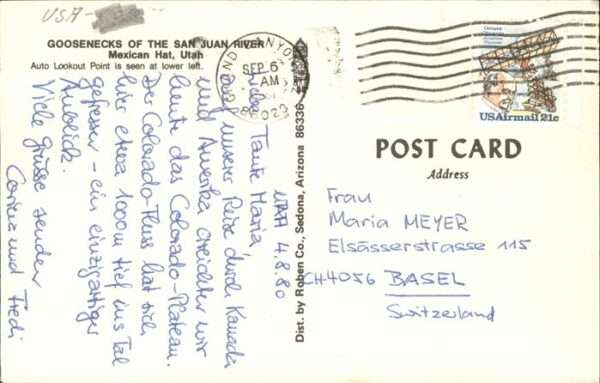 USA
GOOSENECKS OF THE SAN JUAN RIVER
Mexican Hat, Utah
Auto Lookout Point is seen at lower left.
UTAH 4.8.80
Liebe Tante Maria
Auf unserer Reise durch Kanada
und Amerika erreichten wir
heute das Colorado-Plateau.
Der Colorado-Fluss hat sich
hier etwa 1000m tief ins Tal
gefressen - ein einzigartiger
Anblick.
Viele Grüsse senden
und Fredi
Dist. by Roben Co., Sedona, Arizona 86336
SEP 6
AM
USAirmail 21c
POST CARD
Address
Frau
Maria MEYER
Elsässerstrasse 115
CH 4056 BASEL
Switzerland